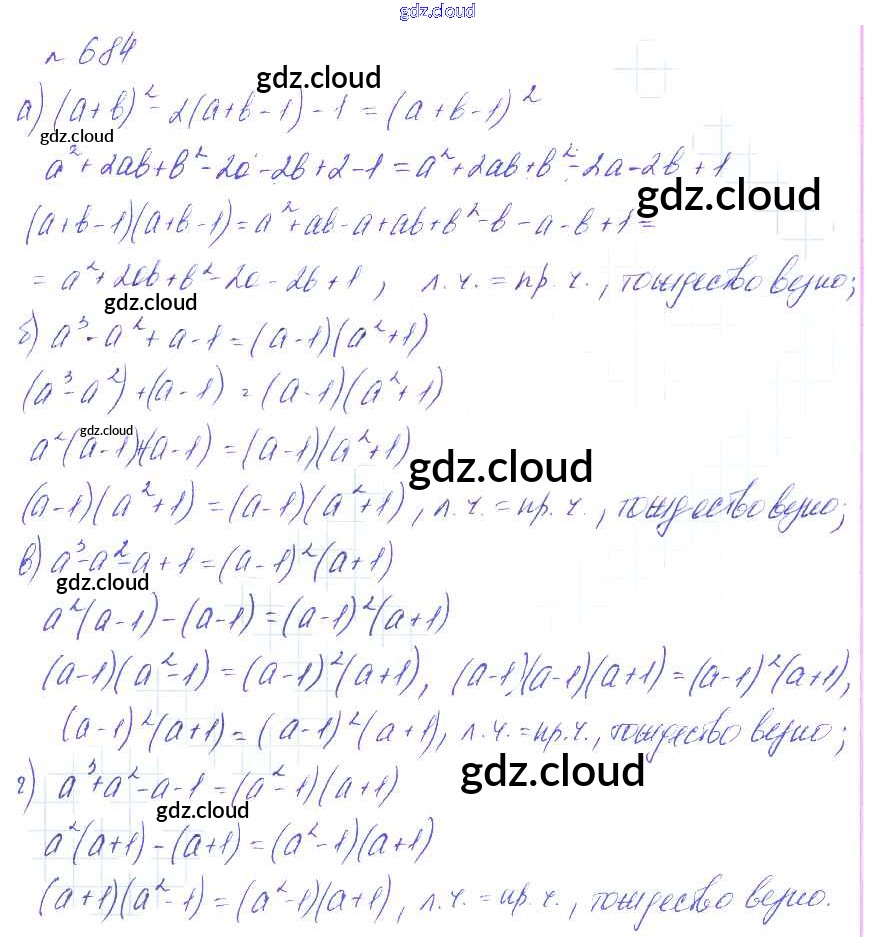 gdz.cloud
№ 684
gdz.cloud
а) (a+b)² - 2(a+b-1) - 1 = (a+b-1)²
gdz.cloud
a² + 2ab + b² - 2a - 2b + 2 - 1 = a² + 2ab + b² - 2a - 2b + 1
gdz.cloud
(a+b-1)(a+b-1) = a² + ab - a + ab + b² - b - a - b + 1 =
= a² + 2ab + b² - 2a - 2b + 1, л.ч. = пр.ч., тождество верно;
gdz.cloud
б) a³ - a² + a - 1 = (a-1)(a²+1)
(a³ - a²) + (a-1) = (a-1)(a²+1)
gdz.cloud
a²(a-1)+(a-1) = (a-1)(a²+1)
gdz.cloud
(a-1)(a²+1) = (a-1)(a²+1), л.ч. = пр.ч., тождество верно;
в) a³ - a² - a + 1 = (a-1)²(a+1)
gdz.cloud
a²(a-1) - (a-1) = (a-1)²(a+1)
(a-1)(a²-1) = (a-1)²(a+1), (a-1)(a-1)(a+1) = (a-1)²(a+1),
(a-1)²(a+1) = (a-1)²(a+1), л.ч. = пр.ч., тождество верно;
gdz.cloud
г) a³ + a² - a - 1 = (a²-1)(a+1)
gdz.cloud
a²(a+1) - (a+1) = (a²-1)(a+1)
(a+1)(a²-1) = (a²-1)(a+1), л.ч. = пр.ч., тождество верно.